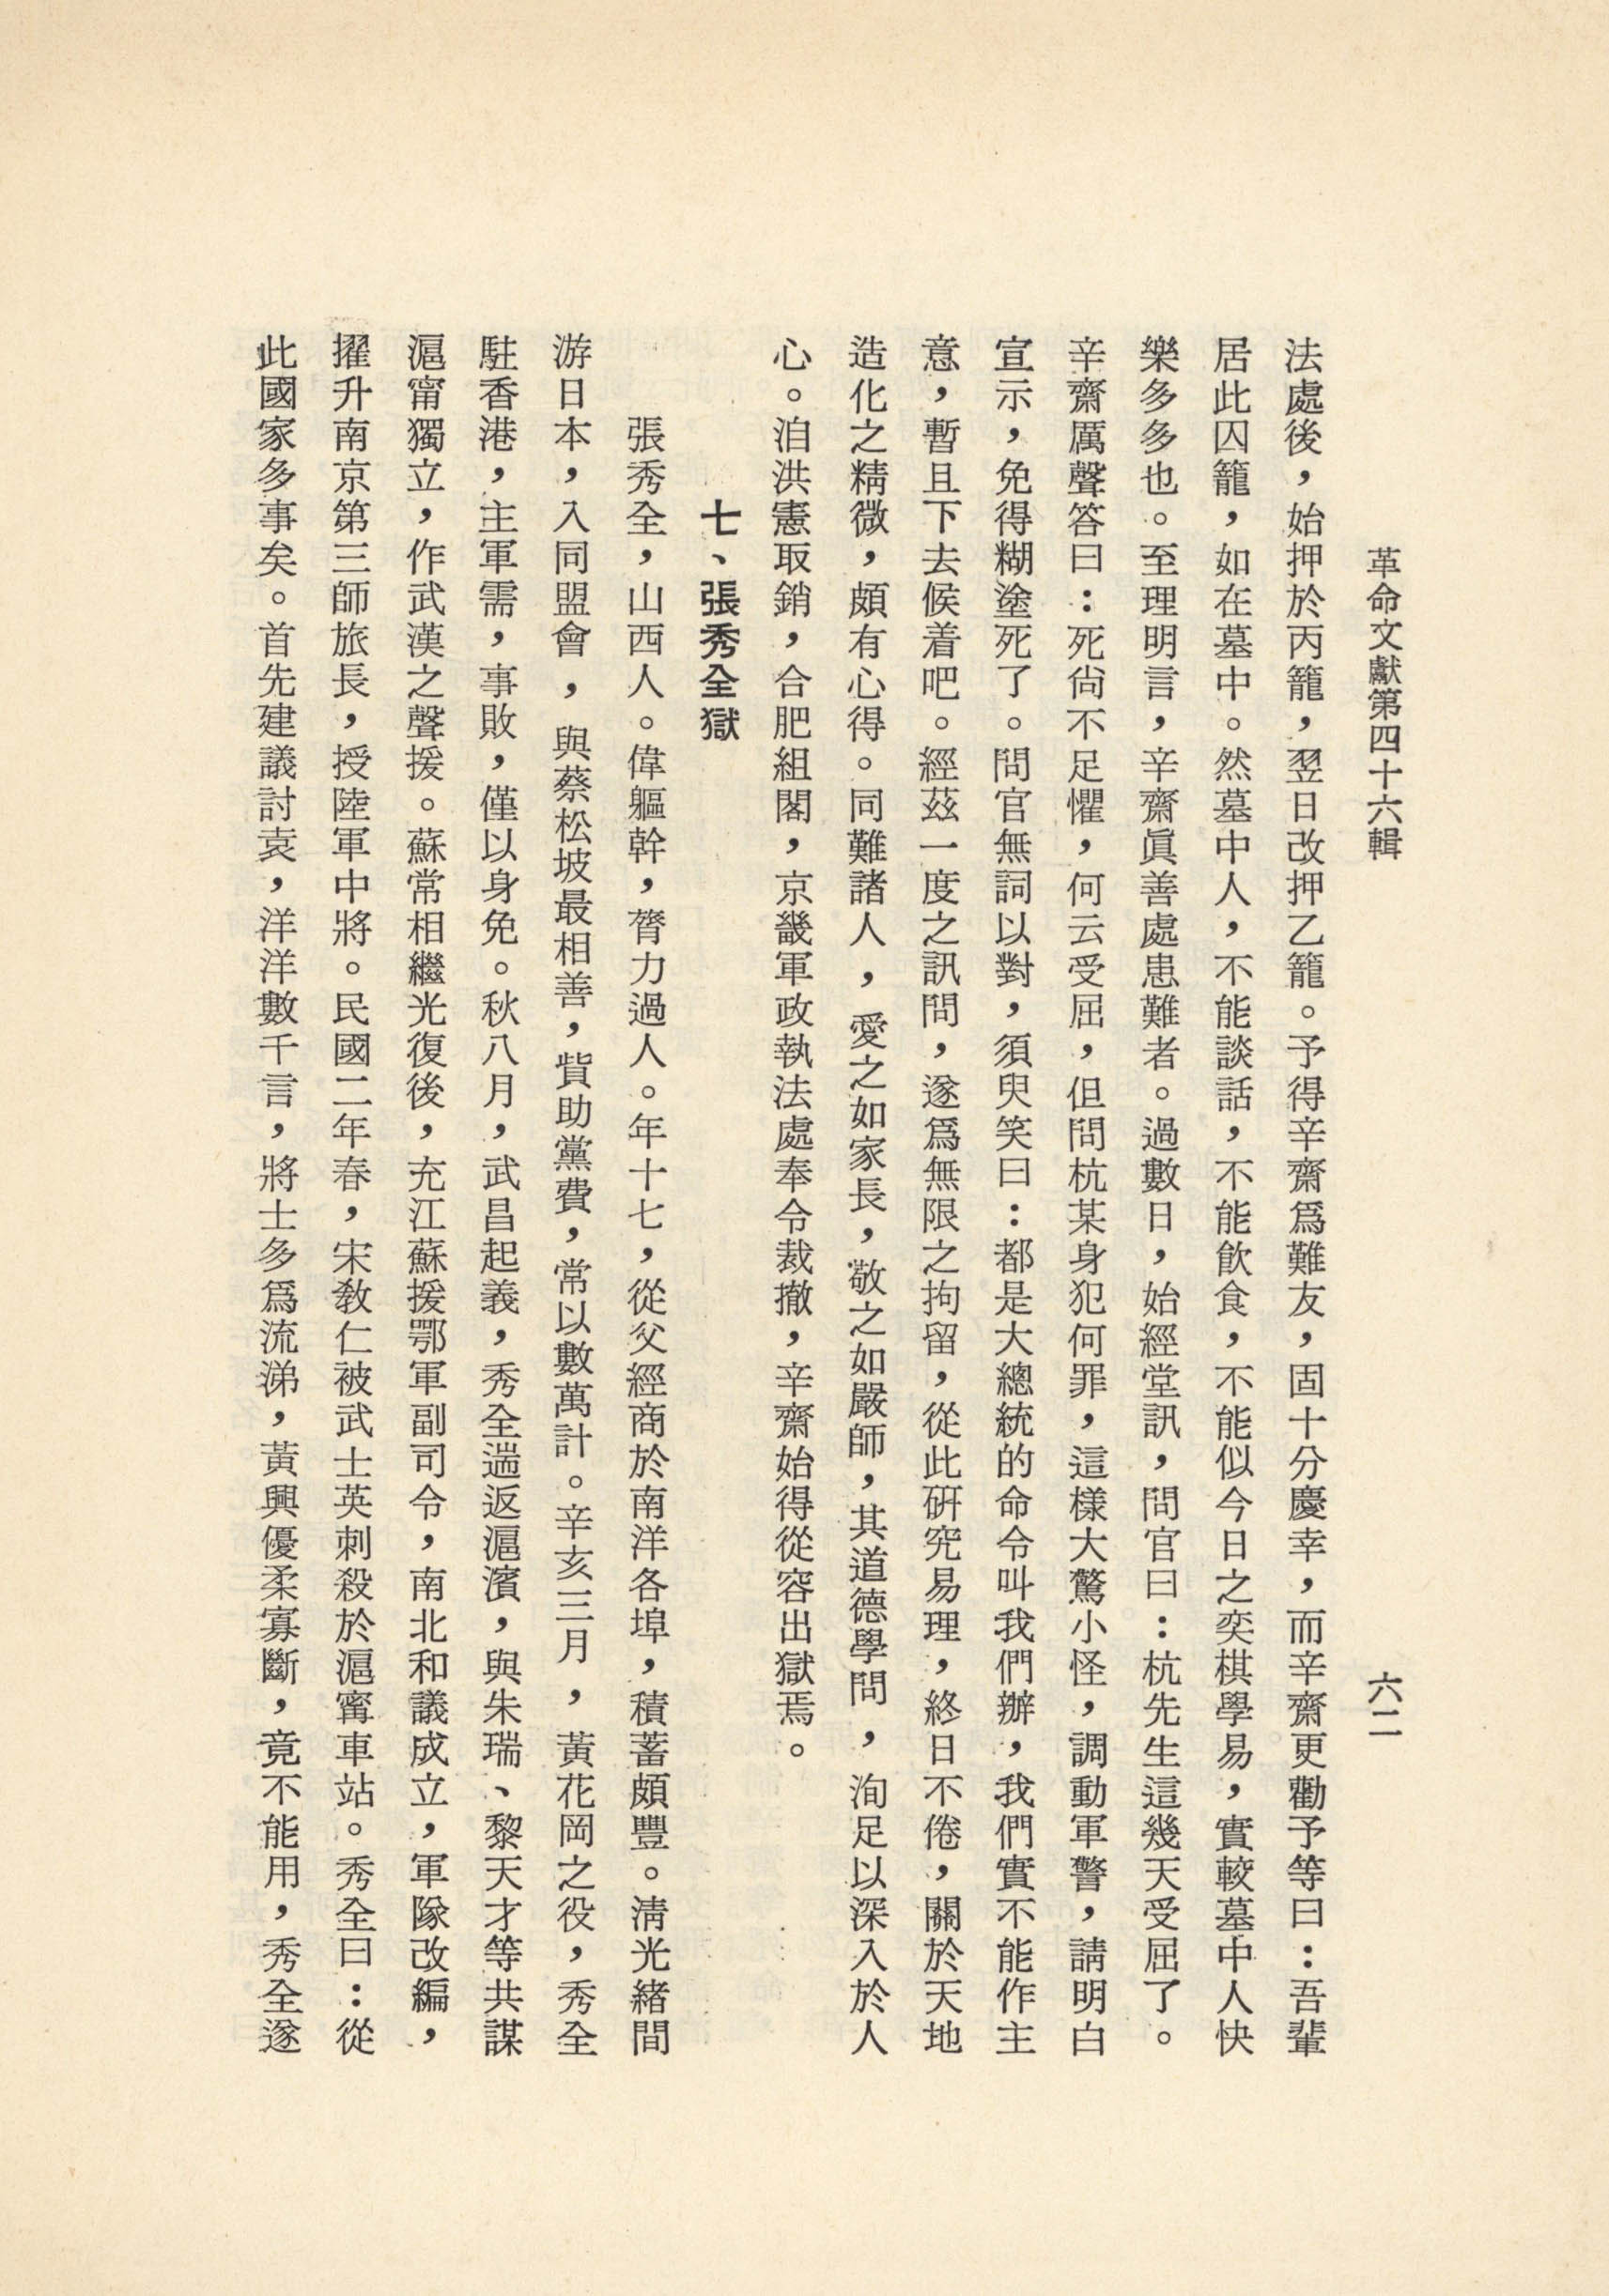 革命文獻第四十六輯
六二
法處後，始押於丙籠，翌日改押乙籠。予得辛齋爲難友，固十分慶幸，而辛齋更勸予等曰：吾輩
居此囚籠，如在墓中。然墓中人，不能談話，不能飲食，不能似今日之奕棋學易，實較墓中人快
樂多多也。至理明言，辛齋眞善處患難者。過數日，始經堂訊，問官曰：杭先生這幾天受屈了。
辛齋厲聲答曰：死尙不足懼，何云受屈，但問杭某身犯何罪，這樣大驚小怪，調動軍警，請明白
宣示，免得糊塗死了。問官無詞以對，須臾笑曰：都是大總統的命令叫我們辦，我們實不能作主
意，暫且下去候着吧。經茲一度之訊問，遂爲無限之拘留，從此硏究易理，終日不倦，關於天地
造化之精微，頗有心得。同難諸人，愛之如家長，敬之如嚴師，其道德學問，洵足以深入於人
心。洎洪憲取銷，合肥組閣，京畿軍政執法處奉令裁撤，辛齋始得從容出獄焉。
七、張秀全獄
張秀全，山西人。偉軀幹，膂力過人。年十七，從父經商於南洋各埠，積蓄頗豐。淸光緒間
游日本，入同盟會，與蔡松坡最相善，貲助黨費，常以數萬計。辛亥三月，黃花岡之役，秀全
駐香港，主軍需，事敗，僅以身免。秋八月，武昌起義，秀全遄返滬濱，與朱瑞、黎天才等共謀
滬甯獨立，作武漢之聲援。蘇常相繼光復後，充江蘇援鄂軍副司令，南北和議成立，軍隊改編，
擢升南京第三師旅長，授陸軍中將。民國二年春，宋敎仁被武士英刺殺於滬甯車站。秀全曰：從
此國家多事矣。首先建議討袁，洋洋數千言，將士多爲流涕，黃興優柔寡斷，竟不能用，秀全遂